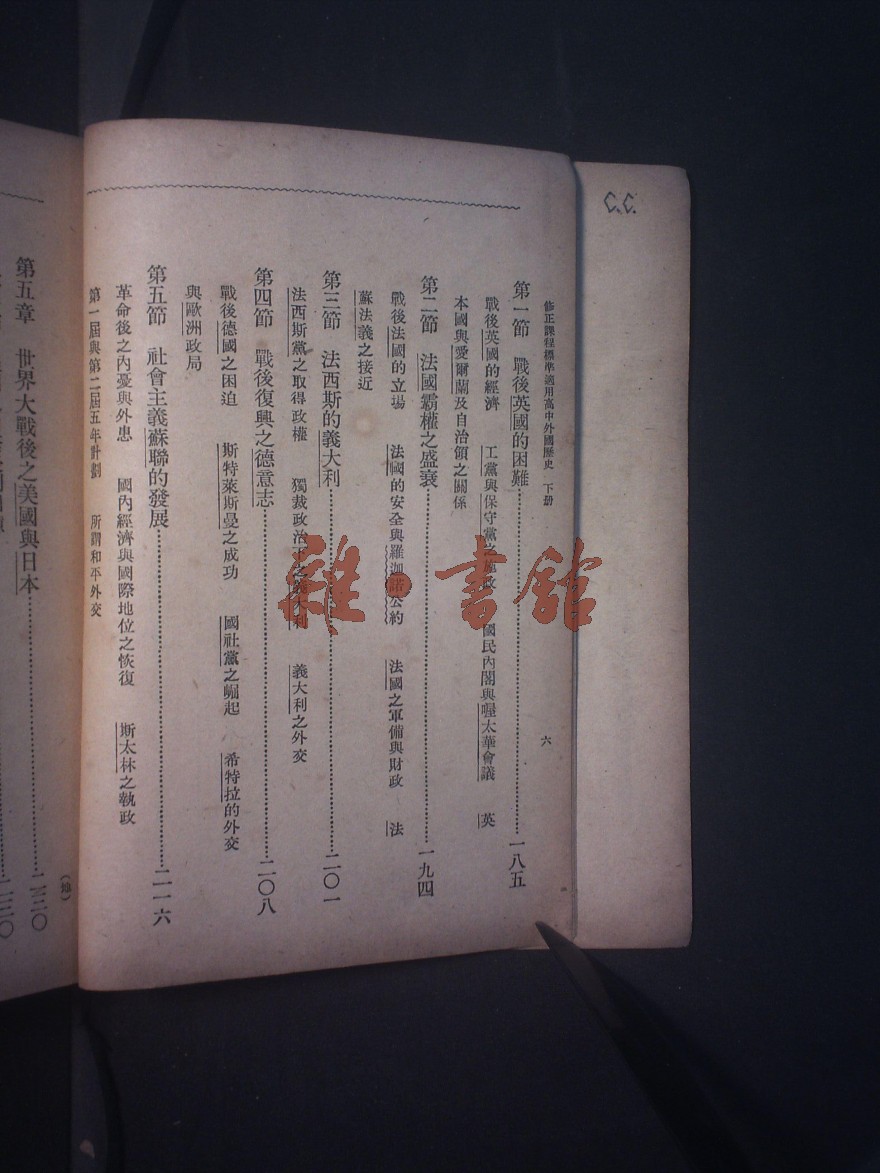 C.C.
修正課程標準適用高中外國歷史 下册
六
第一節 戰後英國的困難……一八五
戰後英國的經濟 工黨與保守黨之施政 國民內閣與喔太華會議 英
本國與愛爾蘭及自治領之關係
第二節 法國霸權之盛衰……一九四
戰後法國的立場 法國的安全與羅迦諾公約 法國之軍備與財政 法
蘇法義之接近
第三節 法西斯的義大利……二〇一
法西斯黨之取得政權 獨裁政治下之義大利 義大利之外交
第四節 戰後復興之德意志……二〇八
戰後德國之困迫 斯特萊斯曼之成功 國社黨之崛起 希特拉的外交
與歐洲政局
第五節 社會主義蘇聯的發展……二一六
革命後之內憂與外患 國內經濟與國際地位之恢復 斯太林之執政
第一屆與第二屆五年計劃 所謂和平外交
第五章 世界大戰後之美國與日本……二三〇
二三〇
雜·書館